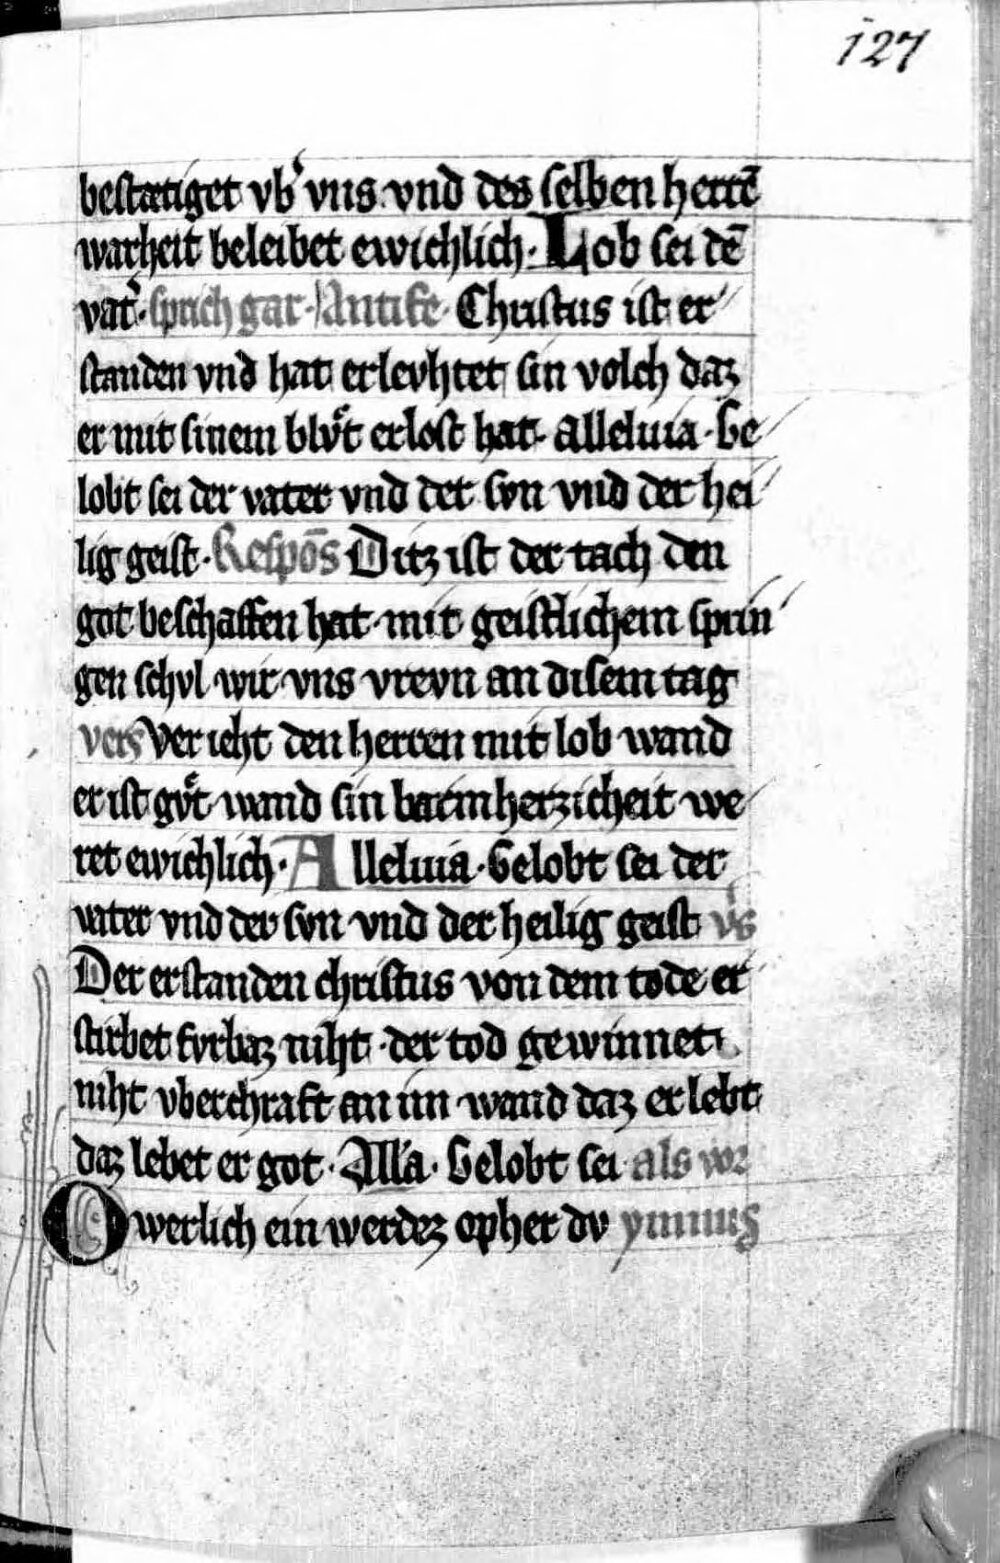 127
bestætiget vb͛ vns vnd des selben herrē
warheit beleibet ewichlich · Lob sei dē
vat͛ · sprich gar · Antife · Christus ist er
standen vnd hat erlevhtet sin volch daz
er mit sinem blvͦt erlost hat · alleluia · Ge
lobt sei der vater vnd der svn vnd der hei
lig geist · Respōs Ditz ist der tach den
got beschaffen hat · mit geistlichem sprin
gen schvl wir vns vrevn an disem tag
vers Veriht den herren mit lob wand
er ist gvͦt wand sin barmherzicheit we
ret ewichlich · Alleluia · Gelobt sei der
vater vnd der svn vnd der heilig geist v͛s
Der erstanden christus von dem tode er
stirbet fvrbaz niht · der tod gewinnet
niht vberchraft an im wand daz er lebt
daz lebet er got · All'a · Gelobt sei als vor
O werlich ein werdez opher dv ymnus